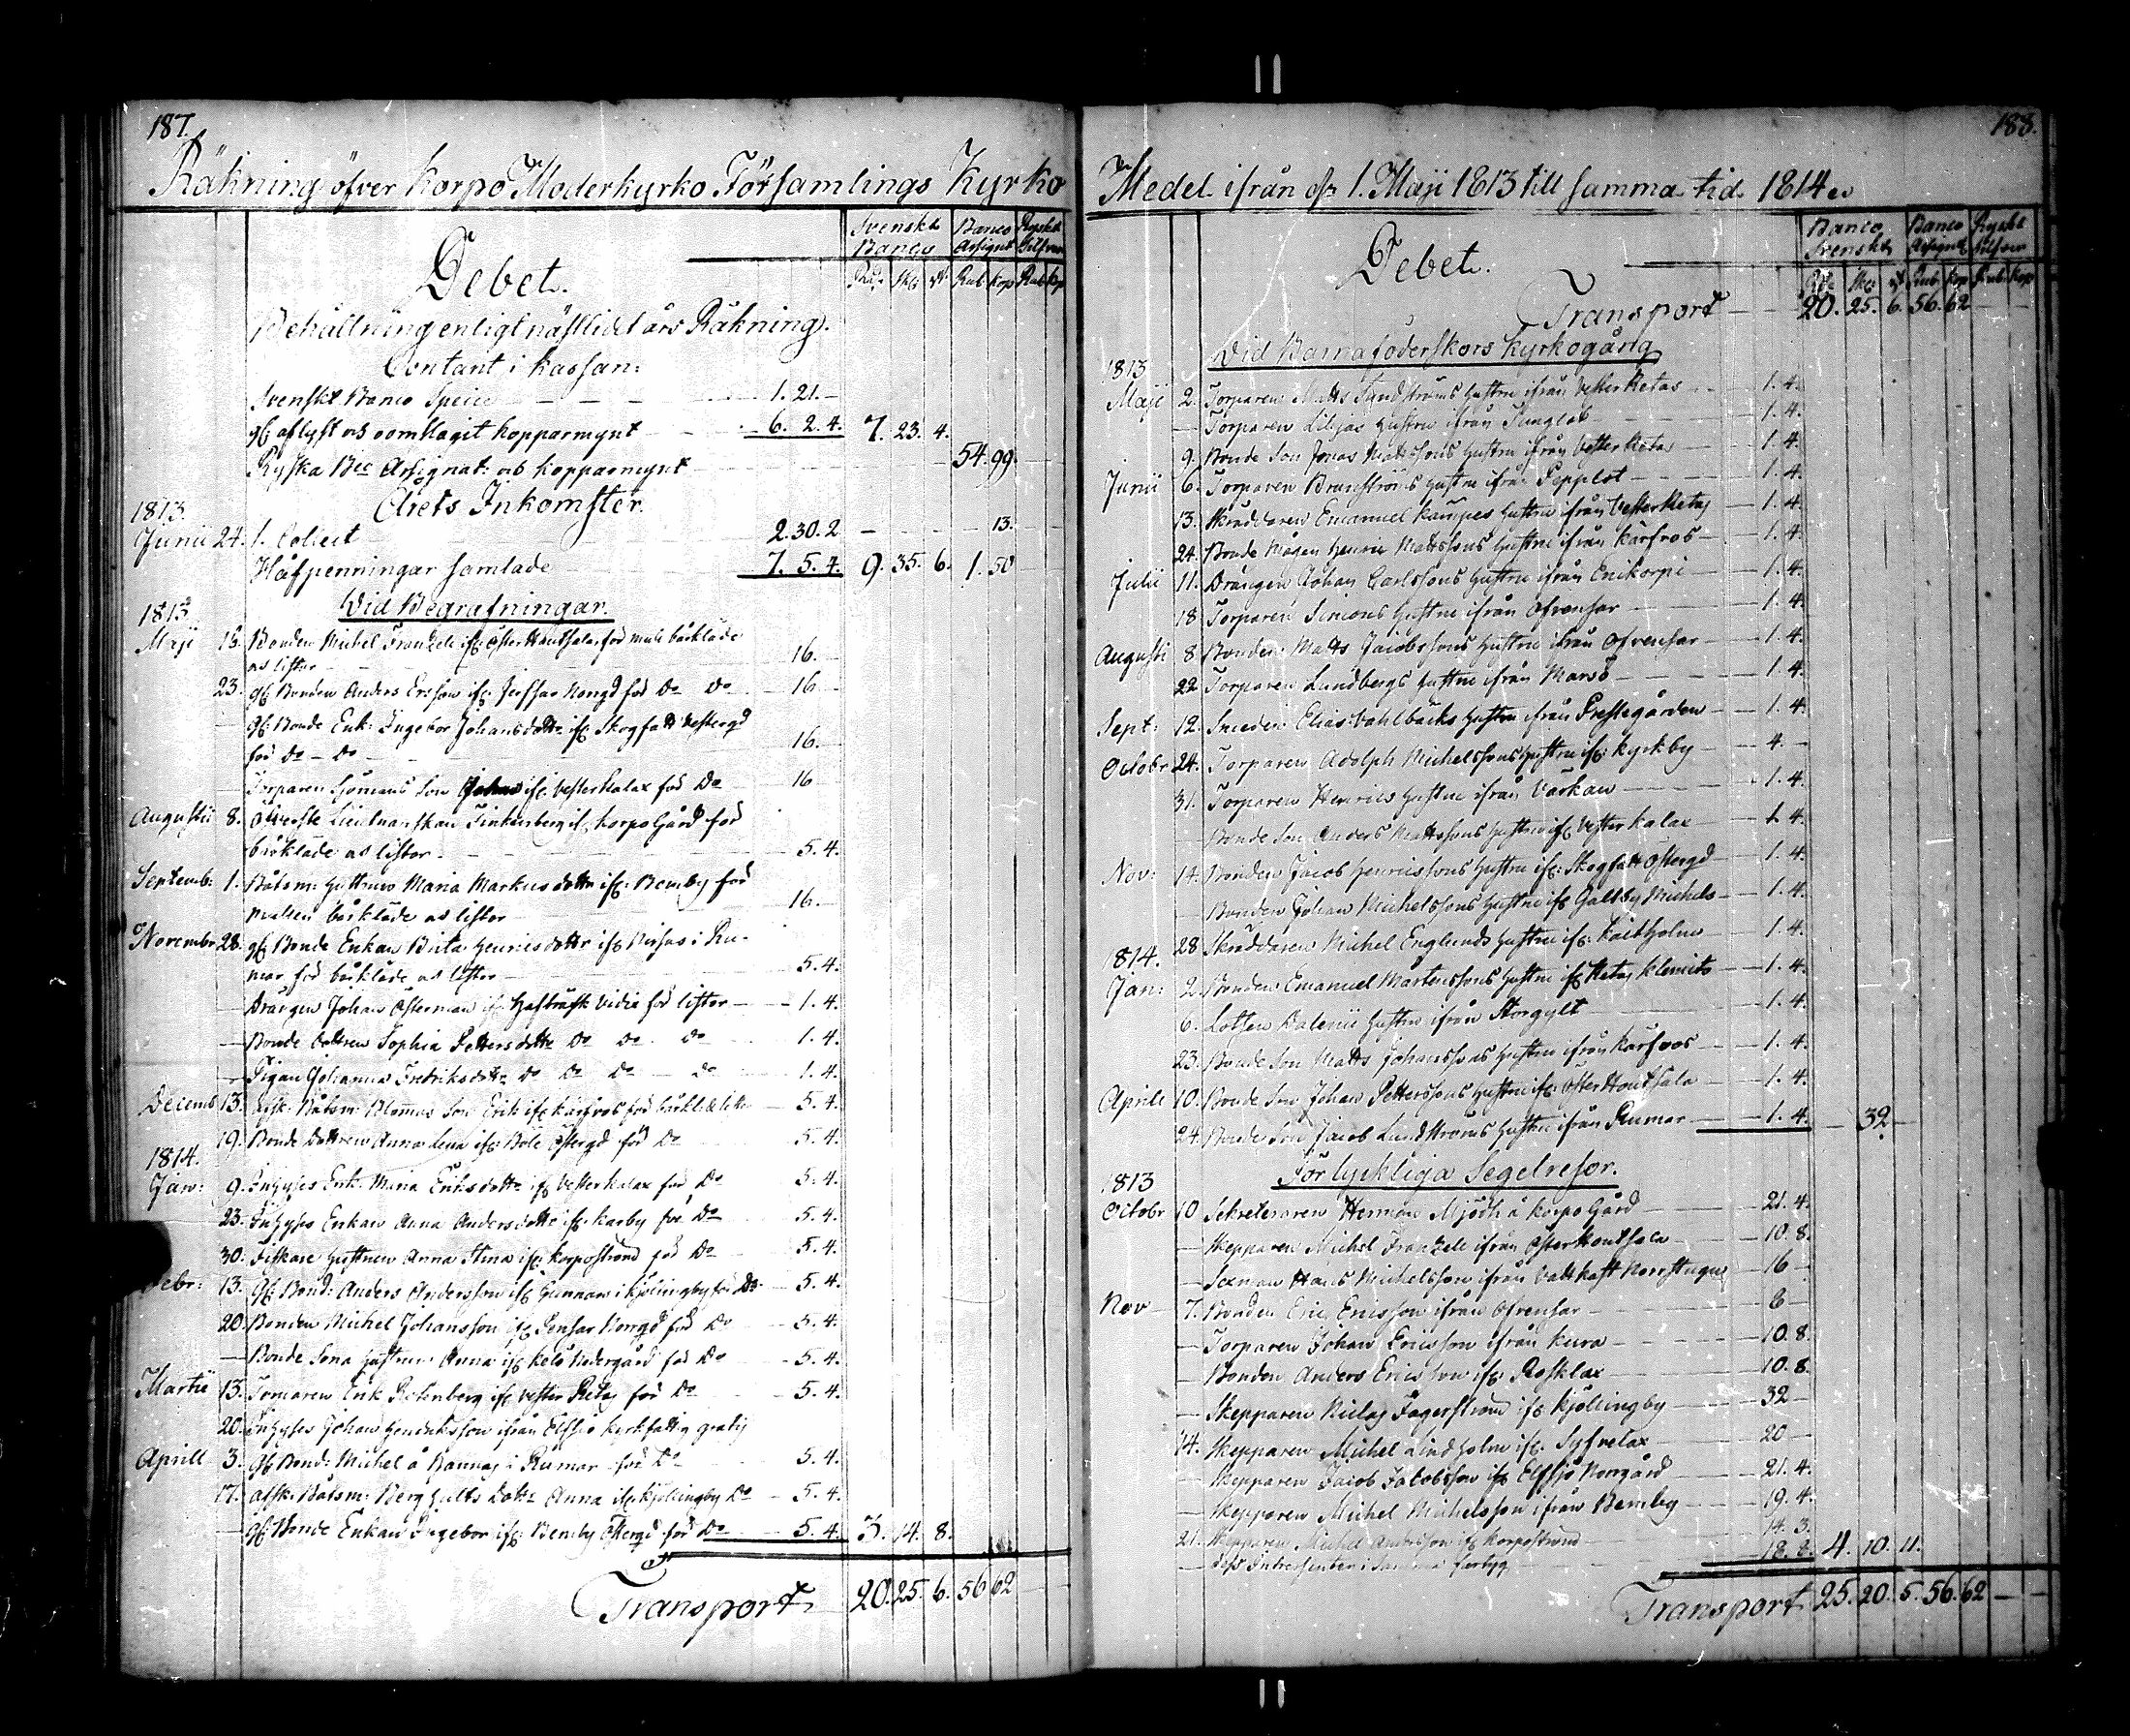 187.
Räkning öfver Korpo Moderkyrko Församlings Kyrko
Svenskt Banco Ryskt
Banco Assignt Silfver
Debet. Rdr Sk: rst Rub kop Rub kop
Behållning enligt näst lidet års Räkning.
Contant i kassan:
Svenskt Banco Specie 1. 21.
gl: aflyst och oomslagit kopparmynt 6. 2. 4. 7. 23. 4.
Ryska Bco Assignat: och kopparmynt 54. 99.
1813. Årets Inkomster.
Junii 24. 1. Collect 2. 30. 2 13.
Håfpenningar samlade 7. 5. 4. 9. 35. 6. 1. 50
1813. Vid Begrafningar.
Maji Bonden Michel Franzele if: Öster Hontsala, för bårkläde
och listor 16.
23. gl: Bonden Anders Ersson if: Norgd för Do Do 16
gl: Bonde Enk: Ingebor Johansdotter if: Skogfatt Vestergd
för Do Do 16.
Torparen Sjömans Son Johan if: Vesterkalax för Do 16
Augustii 8. Öfverste Lieutnanskan Finkenberg if: Korpo Gård för
bårkläde och listor 5. 4.
Septemb: 1. Båtsm: Hustruns Maria Markusdotter if: Bemby för
bårkläde och listor 16.
Novembr 28. gl: Bonde Enkan Brita Henricsdotter if: i Ru-
mar för bårkläde och listor 5. 4.
Drängen Johan Österman if: Hafträsk Vidix för listor 1. 4.
Bonde dottren Sophia Pettersdotter Do Do Do 1. 4.
Pigan Johanna Fredriksdotter Do Do Do Do 1. 4.
Decemb 13. afsk: Båtsm: Blommas Son Erik if: Kärfvos för 5. 4.
19. Bonde Dottren Anna Lena if: Böle Östergd för Do 5. 4.
1814.
Jan: 9. Inhyses Enk: Maria Eriksdotter if: Vesterkalax för Do 5. 4.
23. Inhyses Enkan Anna Andersdotter if: Karby för Do 5. 4.
30. Fiskare Hustrun Anna Stina if: Korpostrand för Do 5. 4.
Febr: 13. gl: Bond: Anders Andersson if: Gunnars i Kjöllingby för Do 5. 4.
20. Bonden Michel Johansson if: Norrgd för Do 5. 4.
Bonde Sona Hustrun Anna if: Nedergård för Do 5. 4.
Martii 13. Enk: Rotenberg if: Vester Retas för Do 5. 4.
20. Inhyses Johan Hendriksson ifrån Elfsjö kyrkfattig gratis
Aprill 3. gl: Bond: Michel å Bannas i Rumar för Do 5. 4.
17. afsk: Båtsm: Berghults Dotter Anna if: Kjöllingby Do 5. 4.
gl: Bonde Enkan Ingebor if: Bemby Östergd för Do 5. 4. 3. 14. 8.
Transport 20. 25. 6. 56 62
188.
Medel ifrån d: 1. Maji 1813 till samma tid 1814.
Banco Banco Ryskt
Svenskt Assignt Silfver
Debet. Rdr Sk: rst Rub kop Rub kop
Transport 20. 25. 6. 56. 62
Vid Barnaföderskors kyrkogång
1813
Maji 2. Torparen Matts Sundströms Hustru ifrån Vester Retas 1. 4.
Torparen Liljas Hustru ifrån 1. 4.
9. Bonde Son Jonas Mattssons Hustru ifrån Vester Retas 1. 4.
Junii 6. Torparen Brunströms Hustru ifrån Pepplot 1. 4.
13. Skräddaren Emanuel Kampes Hustru ifrån Vester Retas 1. 4.
24. Bonde Mågen Henric Mattssons Hustru ifrån Kärfvos 1. 4.
Julii 11. Drängen Johan Carlssons Hustru ifrån Enikorpi 1. 4.
18 Torparen Simons Hustru ifrån Öfvensar 1. 4.
Augusti 8. Bonden Matts Jacobssons Hustru ifrån Öfvensar 1. 4.
22 Torparen Lundbergs Hustru ifrån Marsö 1. 4.
Sept: 12. Smeden Elias Vahlbäcks Hustru ifrån Prestegården 1. 4.
Octobr 24. Torparen Adolph Michelssons Hustru if: Kyrkby 4.
31. Torparen Henrics Hustru ifrån Värkan 1. 4.
Bonde Son Anders Mattssons Hustru if: Vester Kalax 1. 4.
Nov: 14. Bonden Jacob Henricssons Hustru if: Skogfatt Östergd 1. 4.
Bonden Johan Michelssons Hustru if: Galtby Michels 1. 4.
28 Skräddaren Michel Englunds Hustru if: Kaitholm 1. 4.
1814.
Jan: 2. Bonden Emanuel Mårtenssons Hustru if: Retas Klemets 1. 4.
6. Lotsen Hustru ifrån Storgylt 1. 4.
23. Bonde Son Matts Johanssons Hustru ifrån Kärfvos 1. 4.
Aprill 10. Bonde Son Johan Petterssons Hustru if: Öster Hontsala 1. 4.
24. Bonde Son Jacob Lundströms Hustru ifrån Rumar 1. 4. 32
För lyckliga Segelresor.
1813
Octobr 10 Sekreteraren Herman Mjödh å Korpo Gård 21. 4.
Skepparen Michel Franzele ifrån Öster Hontsala 10. 8.
Hans Michelsson ifrån Vattkast Norrstugu 16
Nov 7. Bonden Eric Ericsson ifrån Öfvensar 6
Torparen Johan Ericsson ifrån Kura 10. 8.
Bonden Anders Ericsson if: Rosklax 10. 8.
Skepparen Niclas Fagerström if: Kjöllingby 32
14. Skepparen Michel Lindholm if: Syfvelax 20
Skepparen Jacob Jacobsson if: Elfsjö Norrgård 21. 4.
Skepparen Michel Michelsson ifrån Bemby 19. 4.
21. Skepparen Michel Andersson if: Korpostrand 14. 3.
Intressenter i samma fartyg 18. 8. 4. 10. 11.
Transport 25. 20. 5. 56. 62